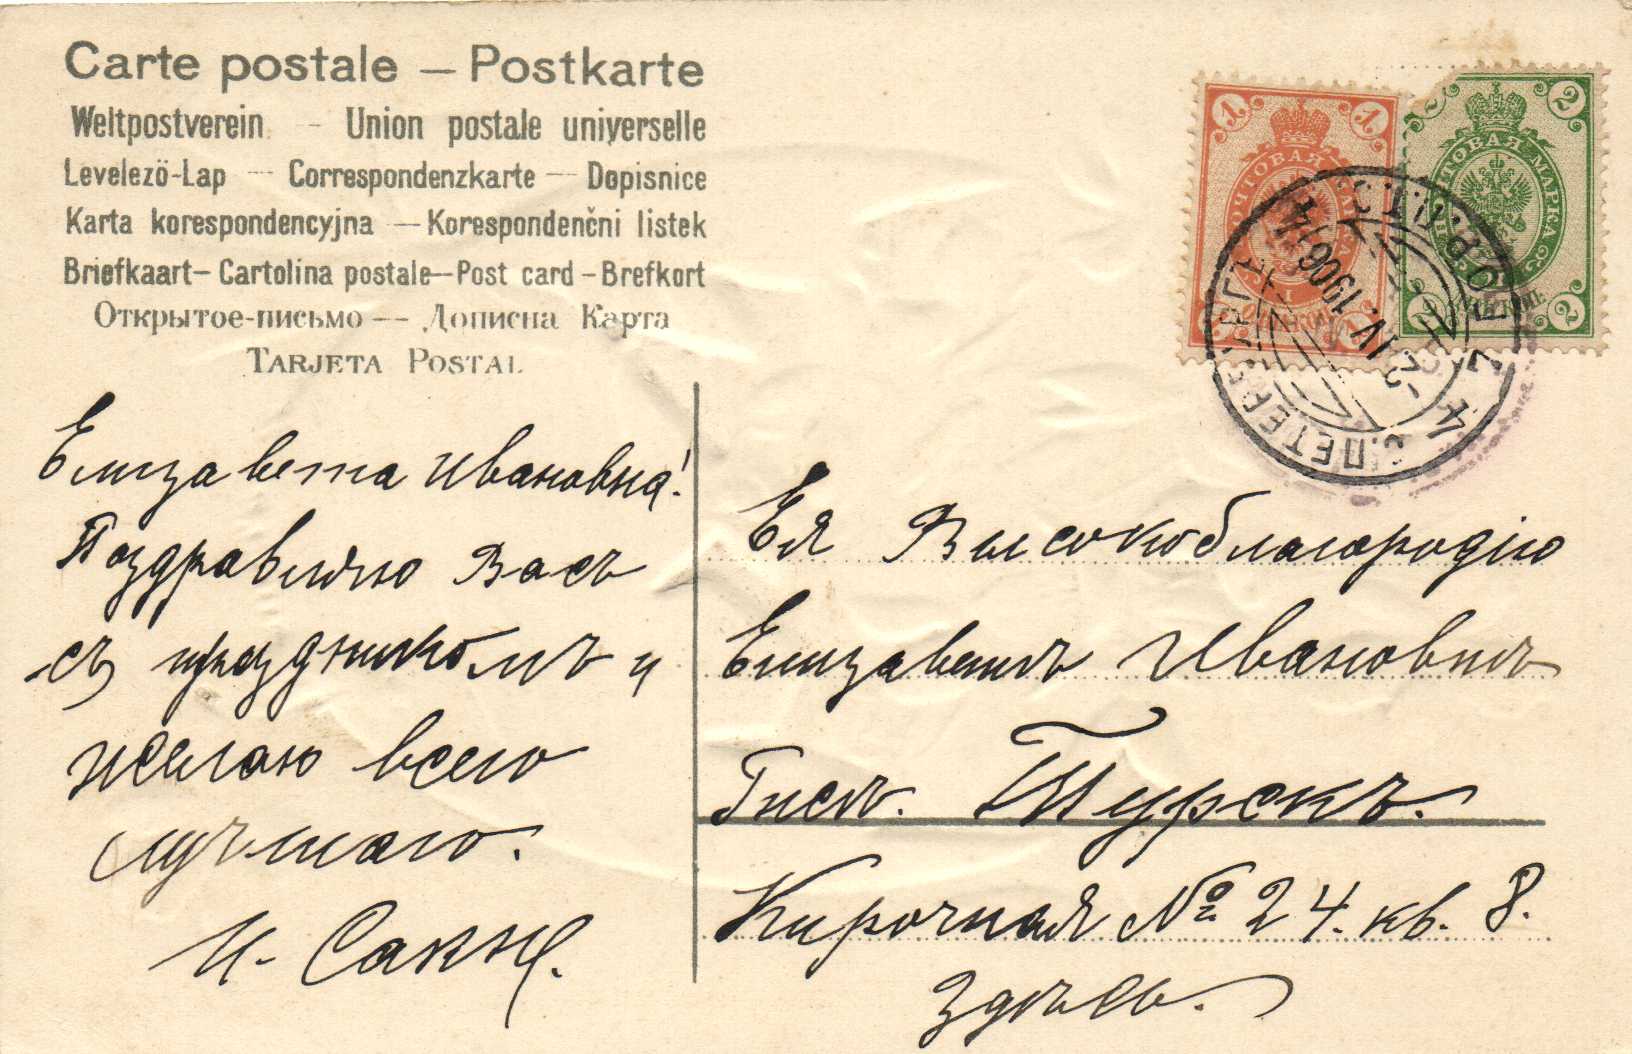 Carte postale — Postkarte
Weltpostverein — Union postale universelle
Levelező-Lap — Correspondenzkarte — Dopisnice
Karta korespondencyjna — Korespondenčni listek
Briefkaart — Cartolina postale — Post card — Brefkort
Открытое-письмо — Дописна Карта
TARJETA POSTAL
Елизавета Ивановна!
Поздравляю Васъ
съ праздникомъ и
желаю всего
лучшаго.
И.
1 1
ПОЧТОВАЯ МАРКА
1 1
2 2
ПОЧТОВАЯ МАРКА
2 2
С.ПЕТЕРБУРГЪ
1906
Ея Высокоблагородію
Елизаветѣ Ивановнѣ
Турскъ.
Кирочная № 24. кв. 8.
Здѣсь.